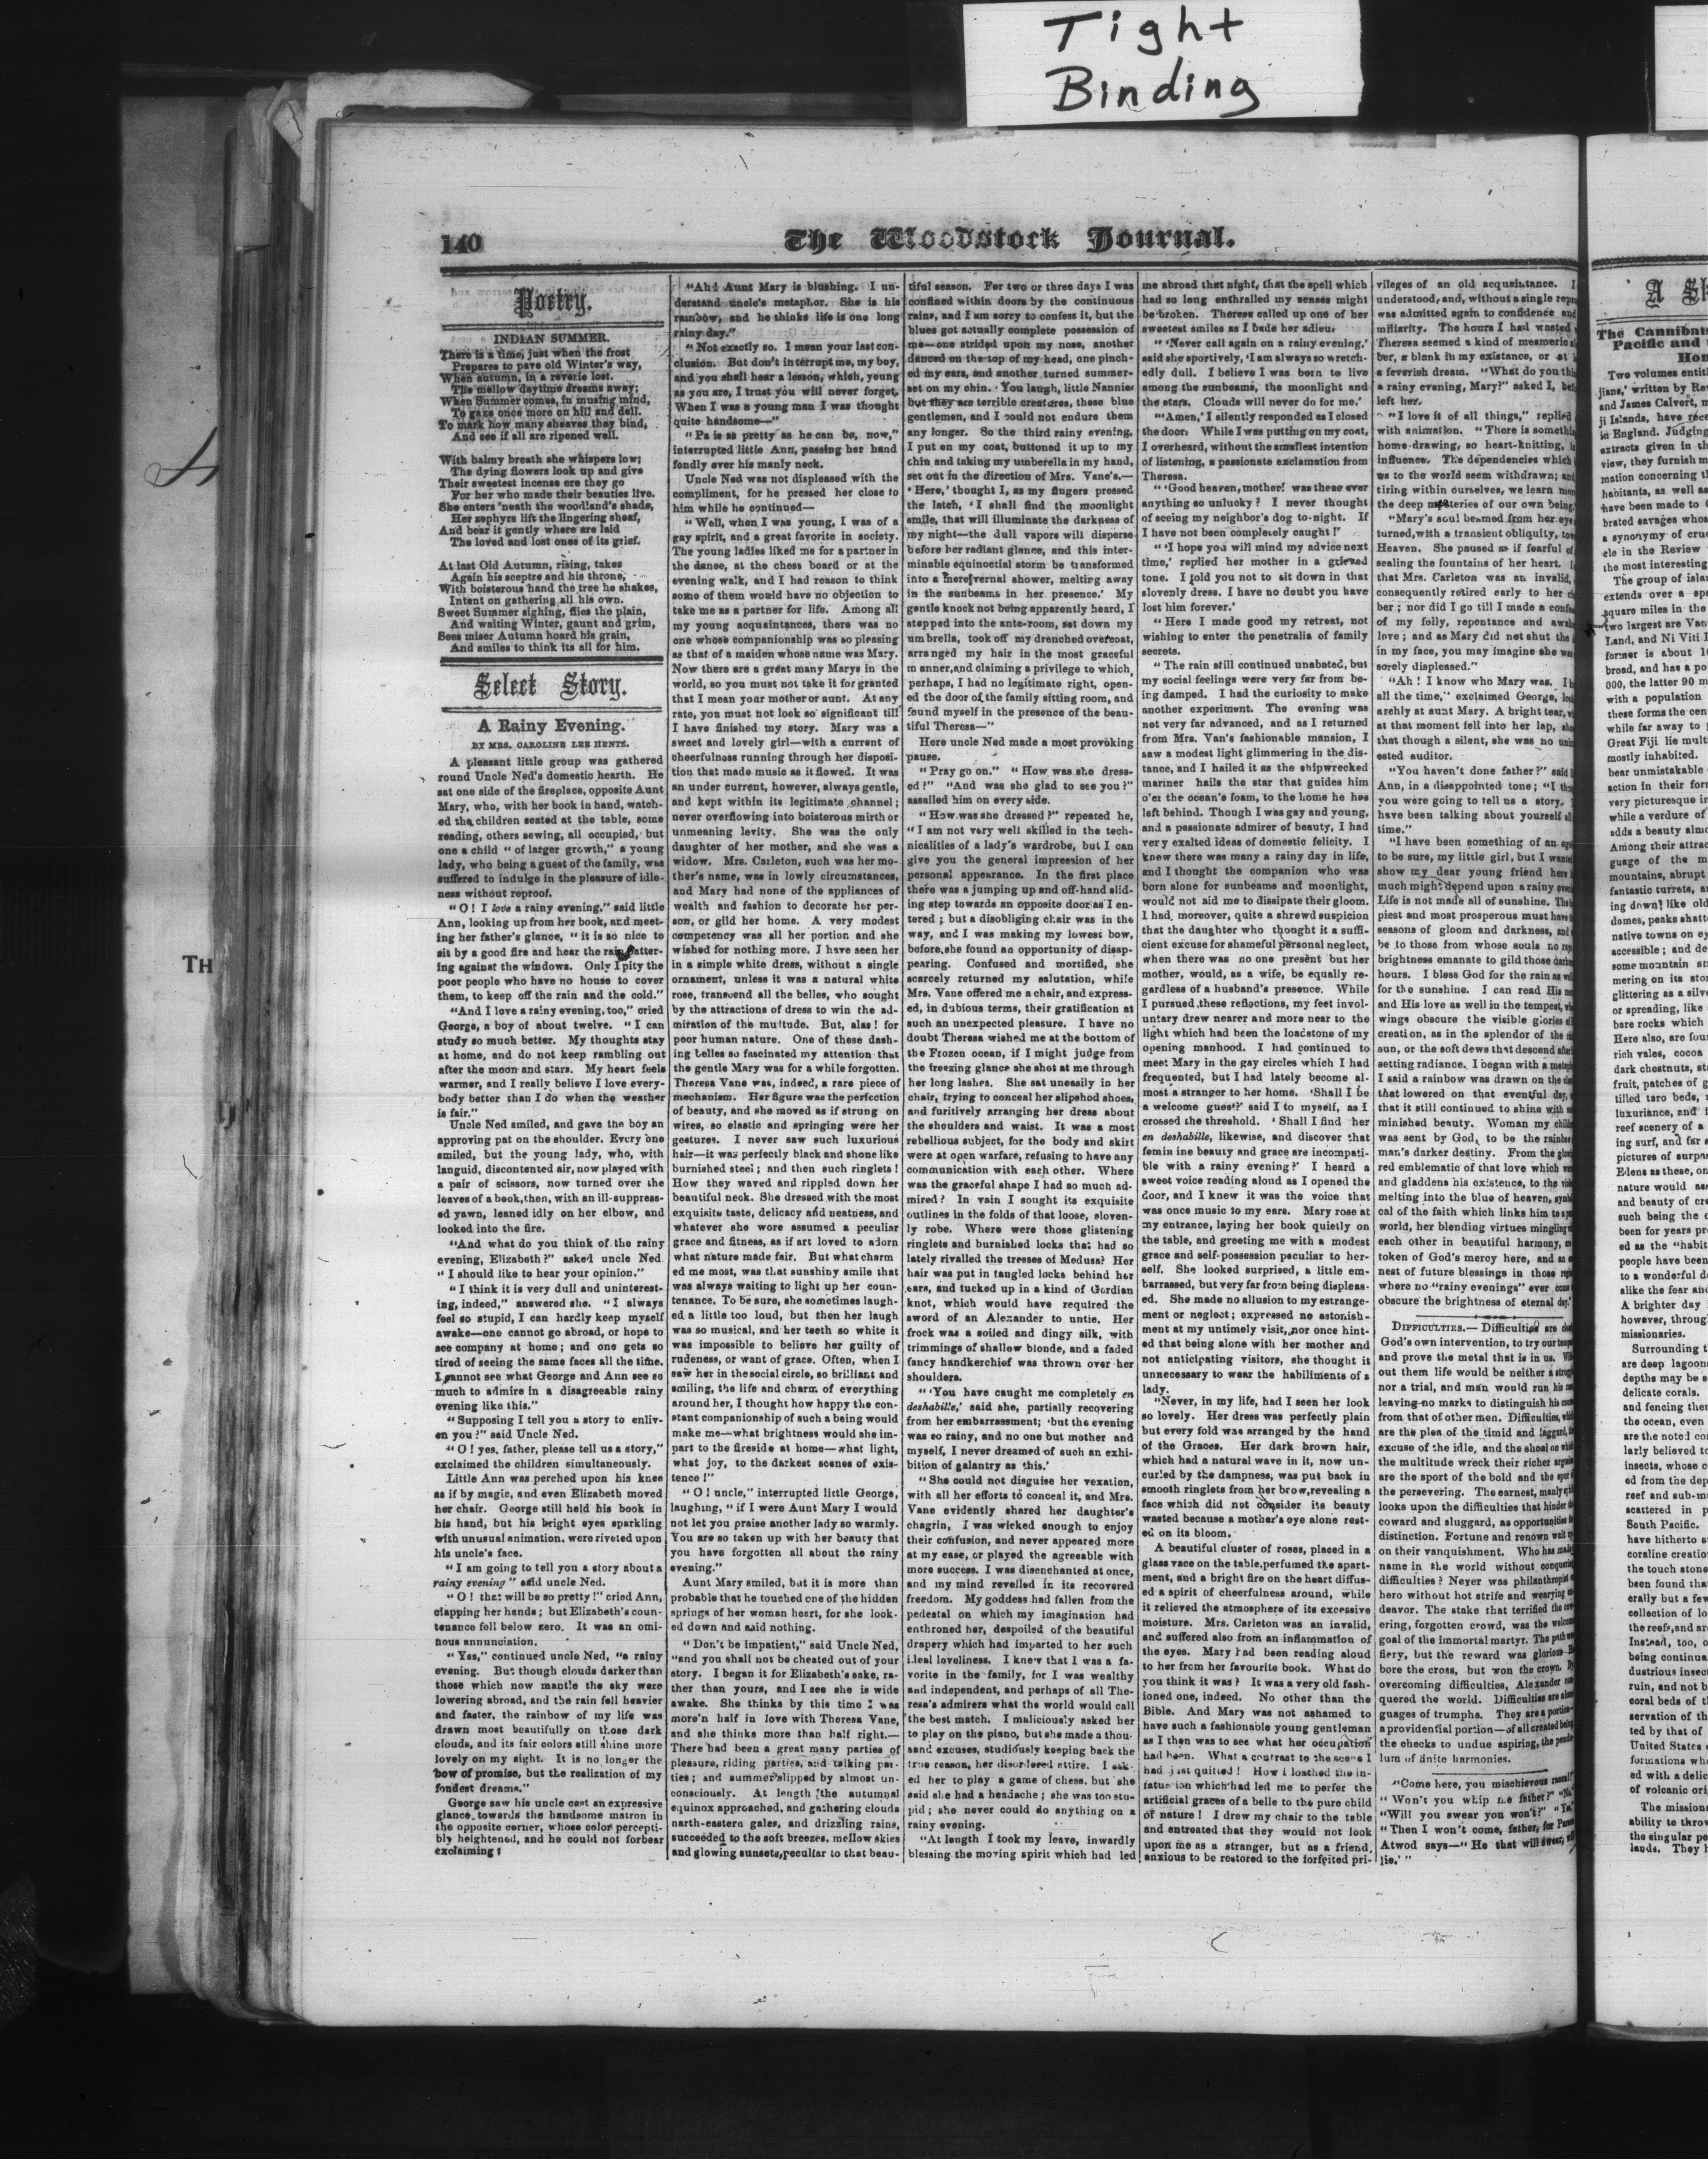 Tight
Binding
140
The Woodstock Journal.
Poetry.
INDIAN SUMMER.
There is a time, just when the frost
Prepares to pave old Winter's way,
When autumn, in a reverie lost.
The mellow daytime dreams away;
When Summer comes, in musing mind,
To gaze once more on hill and dell.
To mark how many sheaves they bind,
And see if all are ripened well.
With balmy breath she whispers low;
The dying flowers look up and give
Their sweetest incense ere they go
For her who made their beauties live.
She enters 'neath the woodland's shade,
Her zephyrs lift the lingering sheaf,
And bear it gently where are laid
The loved and lost ones of its grief.
At last Old Autumn, rising, takes
Again his sceptre and his throne,
With boisterous hand the tree he shakes,
Intent on gathering all his own.
Sweet Summer sighing, flies the plain,
And waiting Winter, gaunt and grim,
Sees miser Autumn hoard his grain,
And smiles to think its all for him.
Select Story.
A Rainy Evening.
BY MRS. CAROLINE LEE HENTZ.
A pleasant little group was gathered
round Uncle Ned's domestic hearth. He
sat one side of the fireplace, opposite Aunt
Mary, who, with her book in hand, watch-
ed the children seated at the table, some
reading, others sewing, all occupied, but
one a child " of larger growth," a young
lady, who being a guest of the family, was
suffered to indulge in the pleasure of idle-
ness without reproof.
"O! I love a rainy evening," said little
Ann, looking up from her book, and meet-
ing her father's glance, "it is so nice to
sit by a good fire and hear the rain patter-
ing against the windows. Only I pity the
poor people who have no house to cover
them, to keep off the rain and the cold."
"And I love a rainy evening, too," cried
George, a boy of about twelve. "I can
study so much better. My thoughts stay
at home, and do not keep rambling out
after the moon and stars. My heart feels
warmer, and I really believe I love every-
body better than I do when the weather
is fair."
Uncle Ned smiled, and gave the boy an
approving pat on the shoulder. Every one
smiled, but the young lady, who, with
languid, discontented air, now played with
a pair of scissors, now turned over the
leaves of a book, then, with an ill-suppress-
ed yawn, leaned idly on her elbow, and
looked into the fire.
"And what do you think of the rainy
evening, Elizabeth?" asked uncle Ned
"I should like to hear your opinion."
"I think it is very dull and uninterest-
ing, indeed," answered she. "I always
feel so stupid, I can hardly keep myself
awake—one cannot go abroad, or hope to
see company at home; and one gets so
tired of seeing the same faces all the time.
I cannot see what George and Ann see so
much to admire in a disagreeable rainy
evening like this."
"Supposing I tell you a story to enliv-
en you?" said Uncle Ned.
"O! yes, father, please tell us a story,"
exclaimed the children simultaneously.
Little Ann was perched upon his knee
as if by magic, and even Elizabeth moved
her chair. George still held his book in
his hand, but his bright eyes sparkling
with unusual animation, were riveted upon
his uncle's face.
"I am going to tell you a story about a
rainy evening" said uncle Ned.
"O! that will be so pretty!" cried Ann,
clapping her hands; but Elizabeth's coun-
tenance fell below zero. It was an omi-
nous annunciation.
"Yes," continued uncle Ned, "a rainy
evening. But though clouds darker than
those which now mantle the sky were
lowering abroad, and the rain fell heavier
and faster, the rainbow of my life was
drawn most beautifully on those dark
clouds, and its fair colors still shine more
lovely on my sight. It is no longer the
bow of promise, but the realization of my
fondest dreams."
George saw his uncle cast an expressive
glance towards the handsome matron in
the opposite corner, whose color percepti-
bly heightened, and he could not forbear
exclaiming:
"Ah! Aunt Mary is blushing. I un-
derstand uncle's metaphor. She is his
rainbow, and he thinks life is one long
rainy day."
"Not exactly so. I mean your last con-
clusion. But don't interrupt me, my boy,
and you shall hear a lesson, which, young
as you are, I trust you will never forget,
When I was a young man I was thought
quite handsome—"
"Pa is as pretty as he can be, now,"
interrupted little Ann, passing her hand
fondly over his manly neck.
Uncle Ned was not displeased with the
compliment, for he pressed her close to
him while he continued—
"Well, when I was young, I was of a
gay spirit, and a great favorite in society.
The young ladies liked me for a partner in
the dance, at the chess board or at the
evening walk, and I had reason to think
some of them would have no objection to
take me as a partner for life. Among all
my young acquaintances, there was no
one whose companionship was so pleasing
as that of a maiden whose name was Mary.
Now there are a great many Marys in the
world, so you must not take it for granted
that I mean your mother or aunt. At any
rate, you must not look so significant till
I have finished my story. Mary was a
sweet and lovely girl—with a current of
cheerfulness running through her disposi-
tion that made music as it flowed. It was
an under current, however, always gentle,
and kept within its legitimate channel;
never overflowing into boisterous mirth or
unmeaning levity. She was the only
daughter of her mother, and she was a
widow. Mrs. Carleton, such was her mo-
ther's name, was in lowly circumstances,
and Mary had none of the appliances of
wealth and fashion to decorate her per-
son, or gild her home. A very modest
competency was all her portion and she
wished for nothing more. I have seen her
in a simple white dress, without a single
ornament, unless it was a natural white
rose, transcend all the belles, who sought
by the attractions of dress to win the ad-
miration of the multude. But, alas! for
poor human nature. One of these dash-
ing belles so fascinated my attention that
the gentle Mary was for a while forgotten.
Theresa Vane was, indeed, a rare piece of
mechanism. Her figure was the perfection
of beauty, and she moved as if strung on
wires, so elastic and springing were her
gestures. I never saw such luxurious
hair—it was perfectly black and shone like
burnished steel; and then such ringlets!
How they waved and rippled down her
beautiful neck. She dressed with the most
exquisite taste, delicacy and neatness, and
whatever she wore assumed a peculiar
grace and fitness, as if art loved to adorn
what nature made fair. But what charm
ed me most, was that sunshiny smile that
was always waiting to light up her coun-
tenance. To be sure, she sometimes laugh-
ed a little too loud, but then her laugh
was so musical, and her teeth so white it
was impossible to believe her guilty of
rudeness, or want of grace. Often, when I
saw her in the social circle, so brilliant and
smiling, the life and charm of everything
around her, I thought how happy the con-
stant companionship of such a being would
make me—what brightness would she im-
part to the fireside at home—what light,
what joy, to the darkest scenes of exis-
tence!"
"O! uncle," interrupted little George,
laughing, "if I were Aunt Mary I would
not let you praise another lady so warmly.
You are so taken up with her beauty that
you have forgotten all about the rainy
evening."
Aunt Mary smiled, but it is more than
probable that he touched one of the hidden
springs of her woman heart, for she look-
ed down and said nothing.
"Don't be impatient," said Uncle Ned,
"and you shall not be cheated out of your
story. I began it for Elizabeth's sake, ra-
ther than yours, and I see she is wide
awake. She thinks by this time I was
more'n half in love with Theresa Vane,
and she thinks more than half right.—
There had been a great many parties of
pleasure, riding parties, and talking par-
ties; and summer slipped by almost un-
consciously. At length the autumnal
equinox approached, and gathering clouds
narth-eastern gales, and drizzling rains,
succeeded to the soft breezes, mellow skies
and glowing sunsets, peculiar to that beau-
tiful season. For two or three days I was
confined within doors by the continuous
rains, and I am sorry to confess it, but the
blues got actually complete possession of
me—one strided upon my nose, another
danced on the top of my head, one pinch-
ed my ears, and another turned summer-
set on my chin. You laugh, little Nannie;
but they are terrible creatures, these blue
gentlemen, and I could not endure them
any longer. So the third rainy evening,
I put on my coat, buttoned it up to my
chin and taking my umberella in my hand,
set out in the direction of Mrs. Vane's.—
'Here,' thought I, as my fingers pressed
the latch, 'I shall find the moonlight
smile, that will illuminate the darkness of
my night—the dull vapors will disperse
before her radiant glance, and this inter-
minable equinoctial storm be transformed
into a mere vernal shower, melting away
in the sunbeams in her presence.' My
gentle knock not being apparently heard, I
stepped into the ante-room, set down my
umbrella, took off my drenched overcoat,
arranged my hair in the most graceful
manner, and claiming a privilege to which,
perhaps, I had no legitimate right, open-
ed the door of the family sitting room, and
found myself in the presence of the beau-
tiful Theresa—"
Here uncle Ned made a most provoking
pause.
"Pray go on." "How was she dress-
ed?" "And was she glad to see you?"
assailed him on every side.
"How was she dressed?" repeated he,
"I am not very well skilled in the tech-
nicalities of a lady's wardrobe, but I can
give you the general impression of her
personal appearance. In the first place
there was a jumping up and off-hand slid-
ing step towards an opposite door as I en-
tered; but a disobliging chair was in the
way, and I was making my lowest bow,
before she found an opportunity of disap-
pearing. Confused and mortified, she
scarcely returned my salutation, while
Mrs. Vane offered me a chair, and express-
ed, in dubious terms, their gratification at
such an unexpected pleasure. I have no
doubt Theresa wished me at the bottom of
the Frozen ocean, if I might judge from
the freezing glance she shot at me through
her long lashes. She sat uneasily in her
chair, trying to conceal her slipshod shoes,
and furitively arranging her dress about
the shoulders and waist. It was a most
rebellious subject, for the body and skirt
were at open warfare, refusing to have any
communication with each other. Where
was the graceful shape I had so much ad-
mired? In vain I sought its exquisite
outlines in the folds of that loose, sloven-
ly robe. Where were those glistening
ringlets and burnished locks that had so
lately rivalled the tresses of Medusa? Her
hair was put in tangled locks behind her
ears, and tucked up in a kind of Gordian
knot, which would have required the
sword of an Alexander to untie. Her
frock was a soiled and dingy silk, with
trimmings of shallow blonde, and a faded
fancy handkerchief was thrown over her
shoulders.
"'You have caught me completely en
deshabille,' said she, partially recovering
from her embarrassment; 'but the evening
was so rainy, and no one but mother and
myself, I never dreamed of such an exhi-
bition of galantry as this.'
"She could not disguise her vexation,
with all her efforts to conceal it, and Mrs.
Vane evidently shared her daughter's
chagrin, I was wicked enough to enjoy
their confusion, and never appeared more
at my ease, or played the agreeable with
more success. I was disenchanted at once,
and my mind revelled in its recovered
freedom. My goddess had fallen from the
pedestal on which my imagination had
enthroned her, despoiled of the beautiful
drapery which had imparted to her such
ideal loveliness. I knew that I was a fa-
vorite in the family, for I was wealthy
and independent, and perhaps of all The-
resa's admirers what the world would call
the best match. I maliciously asked her
to play on the piano, but she made a thou-
sand excuses, studiously keeping back the
true reason, her disordered attire. I ask-
ed her to play a game of chess, but she
said she had a headache; she was too stu-
pid; she never could do anything on a
rainy evening.
"At length I took my leave, inwardly
blessing the moving spirit which had led
me abroad that night, that the spell which
had so long enthralled my senses might
be broken. Theresa called up one of her
sweetest smiles as I bade her adieu.
"'Never call again on a rainy evening,'
said she sportively, 'I am always so wretch-
edly dull. I believe I was born to live
among the sunbeams, the moonlight and
the stars. Clouds will never do for me.'
"'Amen,' I silently responded as I closed
the door. While I was putting on my coat,
I overheard, without the smallest intention
of listening, a passionate exclamation from
Theresa.
"'Good heaven, mother! was there ever
anything so unlucky? I never thought
of seeing my neighbor's dog to-night. If
I have not been completely caught!'
"'I hope you will mind my advice next
time,' replied her mother in a grieved
tone. I told you not to sit down in that
slovenly dress. I have no doubt you have
lost him forever.'
"Here I made good my retreat, not
wishing to enter the penetralia of family
secrets.
"The rain still continued unabated, but
my social feelings were very far from be-
ing damped. I had the curiosity to make
another experiment. The evening was
not very far advanced, and as I returned
from Mrs. Van's fashionable mansion, I
saw a modest light glimmering in the dis-
tance, and I hailed it as the shipwrecked
mariner hails the star that guides him
o'er the ocean's foam, to the home he has
left behind. Though I was gay and young,
and a passionate admirer of beauty, I had
very exalted ideas of domestic felicity. I
knew there was many a rainy day in life,
and I thought the companion who was
born alone for sunbeams and moonlight,
would not aid me to dissipate their gloom.
I had, moreover, quite a shrewd suspicion
that the daughter who thought it a suffi-
cient excuse for shameful personal neglect,
when there was no one present but her
mother, would, as a wife, be equally re-
gardless of a husband's presence. While
I pursued these reflections, my feet invol-
untary drew nearer and more near to the
light which had been the loadstone of my
opening manhood. I had continued to
meet Mary in the gay circles which I had
frequented, but I had lately become al-
most a stranger to her home. 'Shall I be
a welcome guest?' said I to myself, as I
crossed the threshold. 'Shall I find her
en deshabille, likewise, and discover that
femin ine beauty and grace are incompati-
ble with a rainy evening?' I heard a
sweet voice reading aloud as I opened the
door, and I knew it was the voice that
was once music to my ears. Mary rose at
my entrance, laying her book quietly on
the table, and greeting me with a modest
grace and self-possession peculiar to her-
self. She looked surprised, a little em-
barrassed, but very far from being displeas-
ed. She made no allusion to my estrange-
ment or neglect; expressed no astonish-
ment at my untimely visit, nor once hint-
ed that being alone with her mother and
not anticipating visitors, she thought it
unnecessary to wear the habiliments of a
lady.
"Never, in my life, had I seen her look
so lovely. Her dress was perfectly plain
but every fold was arranged by the hand
of the Graces. Her dark brown hair,
which had a natural wave in it, now un-
curled by the dampness, was put back in
smooth ringlets from her brow, revealing a
face which did not consider its beauty
wasted because a mother's eye alone rest-
ed on its bloom.
A beautiful cluster of roses, placed in a
glass vace on the table, perfumed the apart-
ment, and a bright fire on the heart diffus-
ed a spirit of cheerfulness around, while
it relieved the atmosphere of its excessive
moisture. Mrs. Carleton was an invalid,
and suffered also from an inflammation of
the eyes. Mary had been reading aloud
to her from her favourite book. What do
you think it was? It was a very old fash-
ioned one, indeed. No other than the
Bible. And Mary was not ashamed to
have such a fashionable young gentleman
as I then was to see what her occupation
had been. What a contrast to the scene I
had just quitted! How I loathed the in-
fatuation which had led me to perfer the
artificial graces of a belle to the pure child
of nature! I drew my chair to the table
and entreated that they would not look
upon me as a stranger, but as a friend,
anxious to be restored to the forfeited pri-
vileges of an old acquaintance. I
understood, and, without a single
was admitted again to confidence and
miliarity. The hours I had wasted
Theresa seemed a kind of mesmeric
ber, a blank in my existance, or at
a feverish dream. "What do you
a rainy evening, Mary?" asked I,
left her.
"I love it of all things," replied
with animation. "There is
home-drawing, so heart-knitting,
influence. The dependencies which
us to the world seem withdrawn; and
tiring within ourselves, we learn
the deep mysteries of our own being.
"Mary's soul beamed from her
turned, with a transient obliquity,
Heaven. She paused as if fearful of
sealing the fountains of her heart.
that Mrs. Carleton was an invalid,
consequently retired early to her
ber; nor did I go till I made a
of my folly, repentance and
love; and as Mary did not shut the
in my face, you may imagine she was
sorely displeased."
"Ah! I know who Mary was. I
all the time," exclaimed George,
archly at aunt Mary. A bright tear,
at that moment fell into her lap,
that though a silent, she was no
ested auditor.
"You haven't done father?" said
Ann, in a disappointed tone; "I
you were going to tell us a story.
have been talking about yourself all
time."
"I have been something of an
to be sure, my little girl, but I
show my dear young friend here
much might depend upon a rainy
Life is not made all of sunshine. The
piest and most prosperous must have
seasons of gloom and darkness, and
be to those from whose souls no
brightness emanate to gild those
hours. I bless God for the rain as well
for the sunshine. I can read His
and His love as well in the tempest,
wings obscure the visible glories of
creation, as in the splendor of the
sun, or the soft dews that descend after
setting radiance. I began with a
I said a rainbow was drawn on the
that lowered on that eventful day,
that it still continued to shine with
minished beauty. Woman my
was sent by God, to be the rainbow
man's darker destiny. From the
red emblematic of that love which
and gladdens his existence, to the
melting into the blue of heaven,
cal of the faith which links him to
world, her blending virtues mingling
each other in beautiful harmony,
token of God's mercy here, and
nest of future blessings in those
where no "rainy evenings" ever
obscure the brightness of eternal day."
DIFFICULTIES.—Difficulties are
God's own intervention, to try our
and prove the metal that is in us.
out them life would be neither a
nor a trial, and man would run his
leaving no marks to distinguish his
from that of other men. Difficulties,
are the plea of the timid and laggard,
excuse of the idle, and the shoal on which
the multitude wreck their richer
are the sport of the bold and the
the persevering. The earnest, manly
looks upon the difficulties that hinder
coward and sluggard, as opportunities
distinction. Fortune and renown wait
on their vanquishment. Who has made
name in the world without
difficulties? Never was philanthropist
hero without hot strife and wearying
deavor. The stake that terrified the
ering, forgotten crowd, was the welcome
goal of the immortal martyr. The path
fiery, but the reward was glorious—
bore the cross, but won the crown. By
overcoming difficulties, Alexander
quered the world. Difficulties are
guages of trumphs. They are a portion—
a providential portion—of all created being
the checks to undue aspiring, the
lum of finite harmonies.
"Come here, you mischievous rascal!"
"Won't you whip me father?" "No."
"Will you swear you won't?" "Yes."
"Then I won't come, father, for
Atwod says—"He that will swear, will
lie.'"
TH
The Cannibal
Pacific and
Two volumes
written by
and James Calvert,
ji Islands, have
in England. Judging
extracts given in
view, they furnish
mation concerning
habitants, as well as
have been made to
brated savages whose
a synonymy of
cle in the Review
the most interesting
The group of
extends over a
square miles in the
two largest are Van
Land, and Ni Viti
former is about
broad, and has a
000, the latter 90
with a population
these forms the
while far away to
Great Fiji lie
mostly inhabited.
bear unmistakable
action in their
very picturesque
while a verdure of
adds a beauty
Among their
guage of the
mountains, abrupt
fantastic turrets,
ing down like old
domes, peaks
native towns on
accessible; and
some mountain
mering on its
glittering as a
or spreading, like
bare rocks which
Here also, are
rich vales, cocoa
dark chestnuts,
fruit, patches of
tilled taro beds,
luxuriance, and
reef scenery of a
ing surf, and far
pictures of
Edens as these,
nature would
and beauty of
such being the
been for years
ed as the "habit
people have been
to a wonderful
alike the fear and
A brighter day
however,
missionaries.
Surrounding
are deep
depths may be
delicate corals.
and fencing
the ocean, even
are the noted
larly believed to
insects, whose
ed from the
reef and
scattered in
South Pacific.
have hitherto
coraline
the touch stone
been found that
erally but a few
collection of
the reefs, and
Instead, too, of
being
dustrious
ruin, and not
coral beds of
servation of
ted by that of
United States
formations
ed with a
of volcanic
The
ability to throw
the singular
lands. They